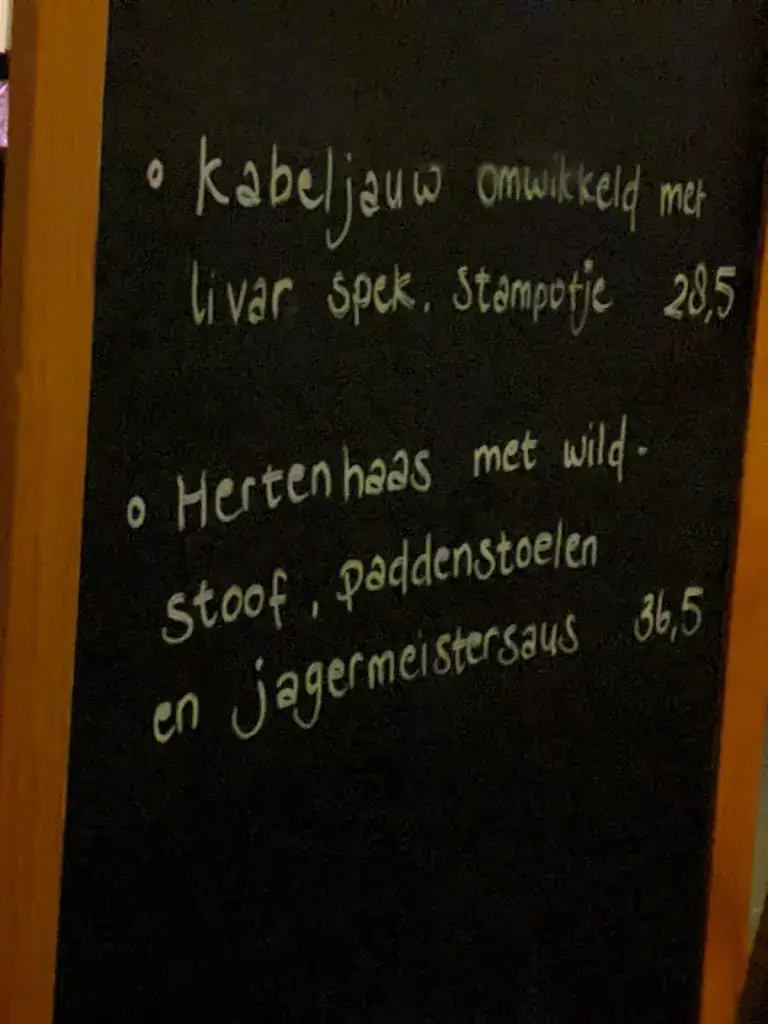 o Kabeljauw omwikkeld met
livar spek. Stampotje 28,5
o Hertenhaas met wild-
stoof, paddenstoelen
en jagermeistersaus 36,5